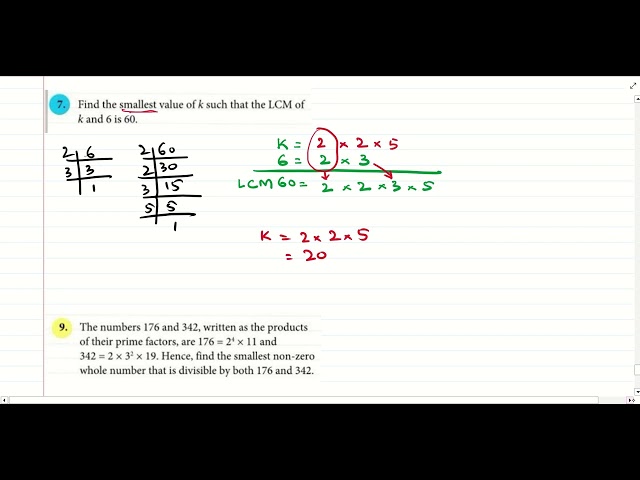 7. Find the smallest value of k such that the LCM of
k and 6 is 60.
2 6
3 3
1
2 60
2 30
3 15
5 5
1
K = 2 × 2 × 5
6 = 2 × 3
LCM 60 = 2 × 2 × 3 × 5
K = 2 × 2 × 5
= 20
9. The numbers 176 and 342, written as the products
of their prime factors, are 176 = 2⁴ × 11 and
342 = 2 × 3² × 19. Hence, find the smallest non-zero
whole number that is divisible by both 176 and 342.